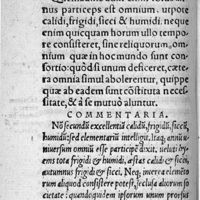 nus particeps est omnium. utpote
calidi, frigidi, sicci & humidi. neque
enim quicquam horum ullo tempo
re consisteret, sine reliquorum, om
nium quæ in hoc mundo sunt con
sortio: quòd si unum desiceret, cæte
ra omnia simul abolerentur, quippe
quæ ab eadem sunt cõstituta necessi
sitate, & à se mutuò aluntur.
COMMENTARIA.
Nõ secundũ excellentiã calidũ, frigidũ, siccũ,
humidũ: sed elementariũ intelligit. Itaq; anni u-
niuersum omniũ esse participẽ dixit, uelut hy-
ems tota frigida & humida, æstas calida & sicca,
autumnus frigidus & siccus. Neq; in uera elemẽto
rum aliquod consistere potest, seclusa aliorum so
cietate: quandoquidem ipsorum unum prorsus